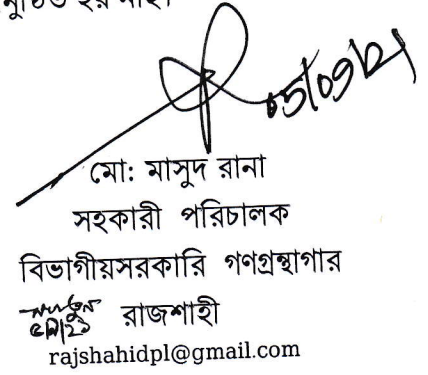 হয় নাই।
05/09/21
মো: মাসুদ রানা
সহকারী পরিচালক
বিভাগীয়সরকারি গণগ্রন্থাগার
রাজশাহী
rajshahidpl@gmail.com